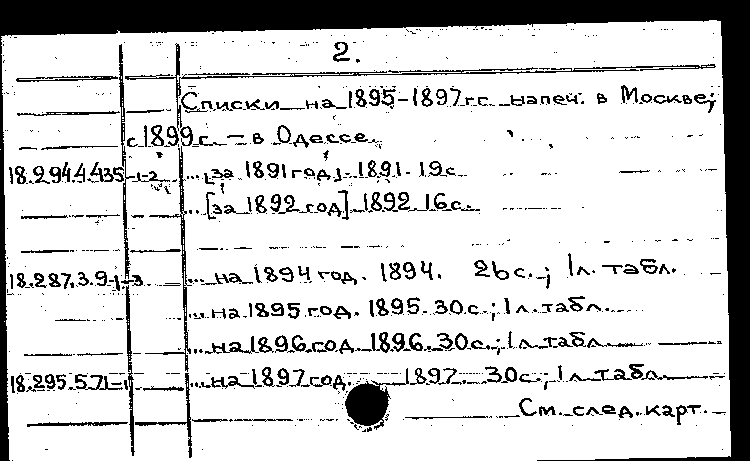 2.
Списки на 1895-1897гг. напеч. в Москве;
с 1899г. – в Одессе.
18.294.4.435-1-2 ...[за 1891 год]. 1891. 19с.
...[за 1892 год] 1892. 16с.
18.287.3.9-1-3 ...на 1894 год. 1894. 26с.; 1л. табл.
...на 1895 год. 1895. 30с.; 1л. табл.
...на 1896 год. 1896. 30с.; 1л. табл.
18.295.5.71-1 ...на 1897 год. 1897. 30с.; 1л. табл.
См. след. карт.